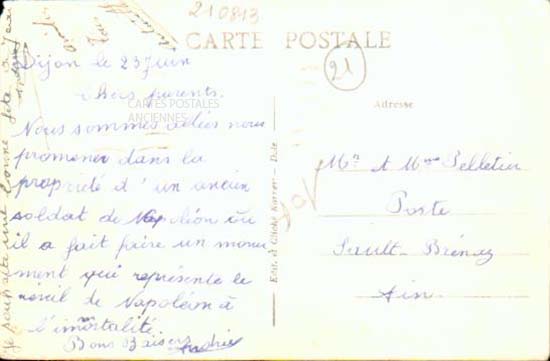 210843
CARTE POSTALE
21
Dijon le 23 Juin
Chers parents.
CARTES POSTALES
ANCIENNES
Nous sommes allés nous
promener dans la
propriété d'un ancien
soldat de Napoléon où
il a fait faire un monu
ment qui représente le
réveil de Napoléon à
l'immortalité.
Bons Baisers
Je souhaite une bonne fête à
Edit. et Cliché Karrer - Dole
Adresse
Mr et Mme Pelletier
Poste
Sault-Brénaz
Ain